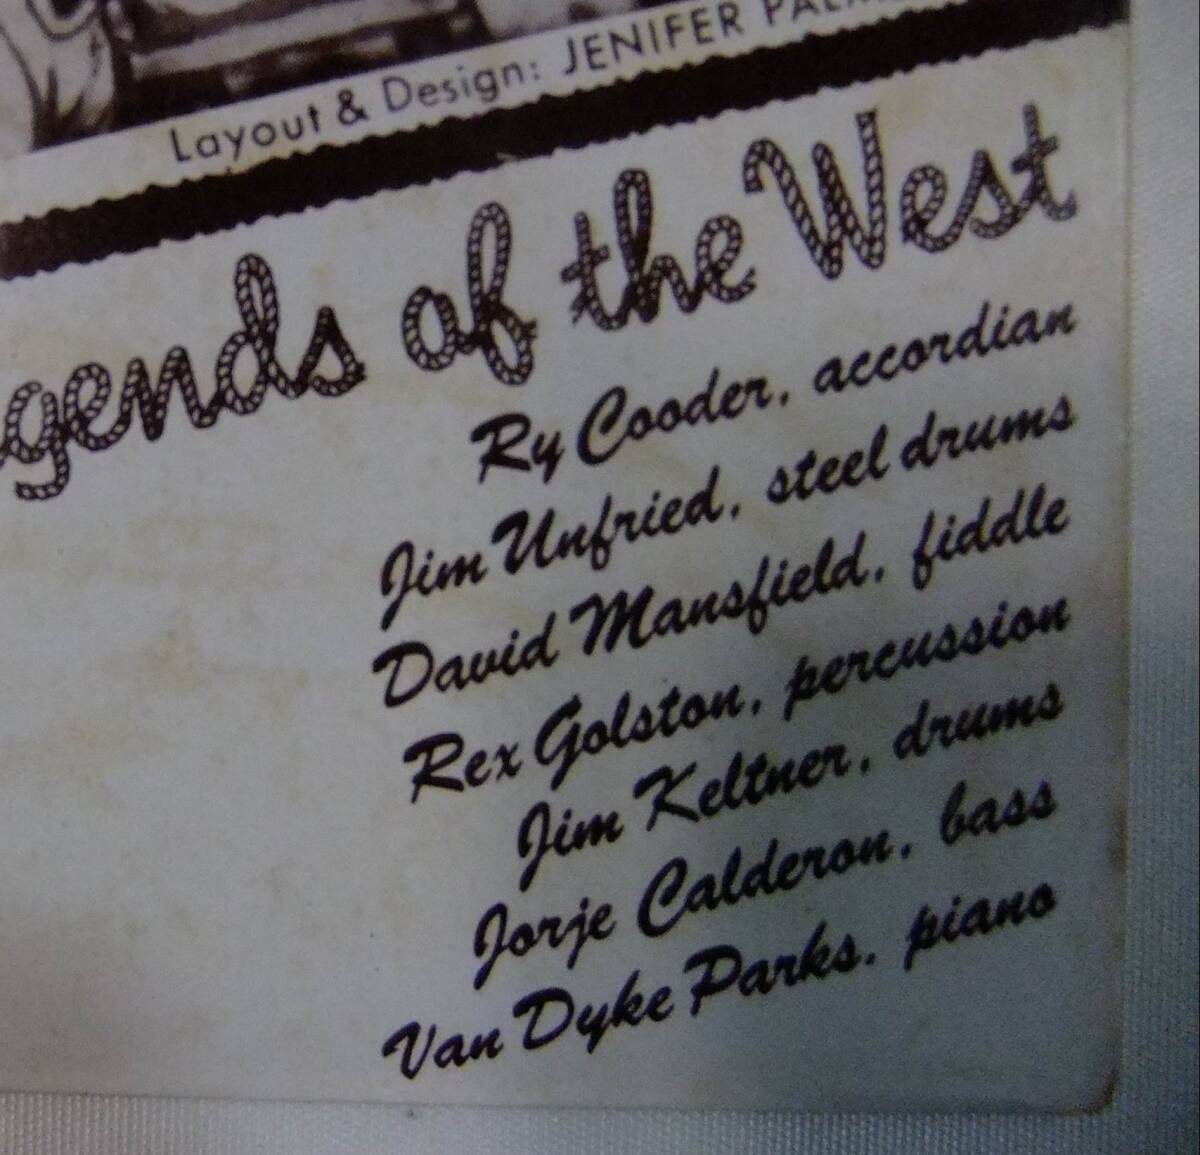 Layout & Design: JENIFER
gends of the West
Ry Cooder, accordian
Jim Unfried, steel drums
David Mansfield, fiddle
Rex Golston, percussion
Jim Keltner, drums
Jorje Calderon, bass
Van Dyke Parks, piano